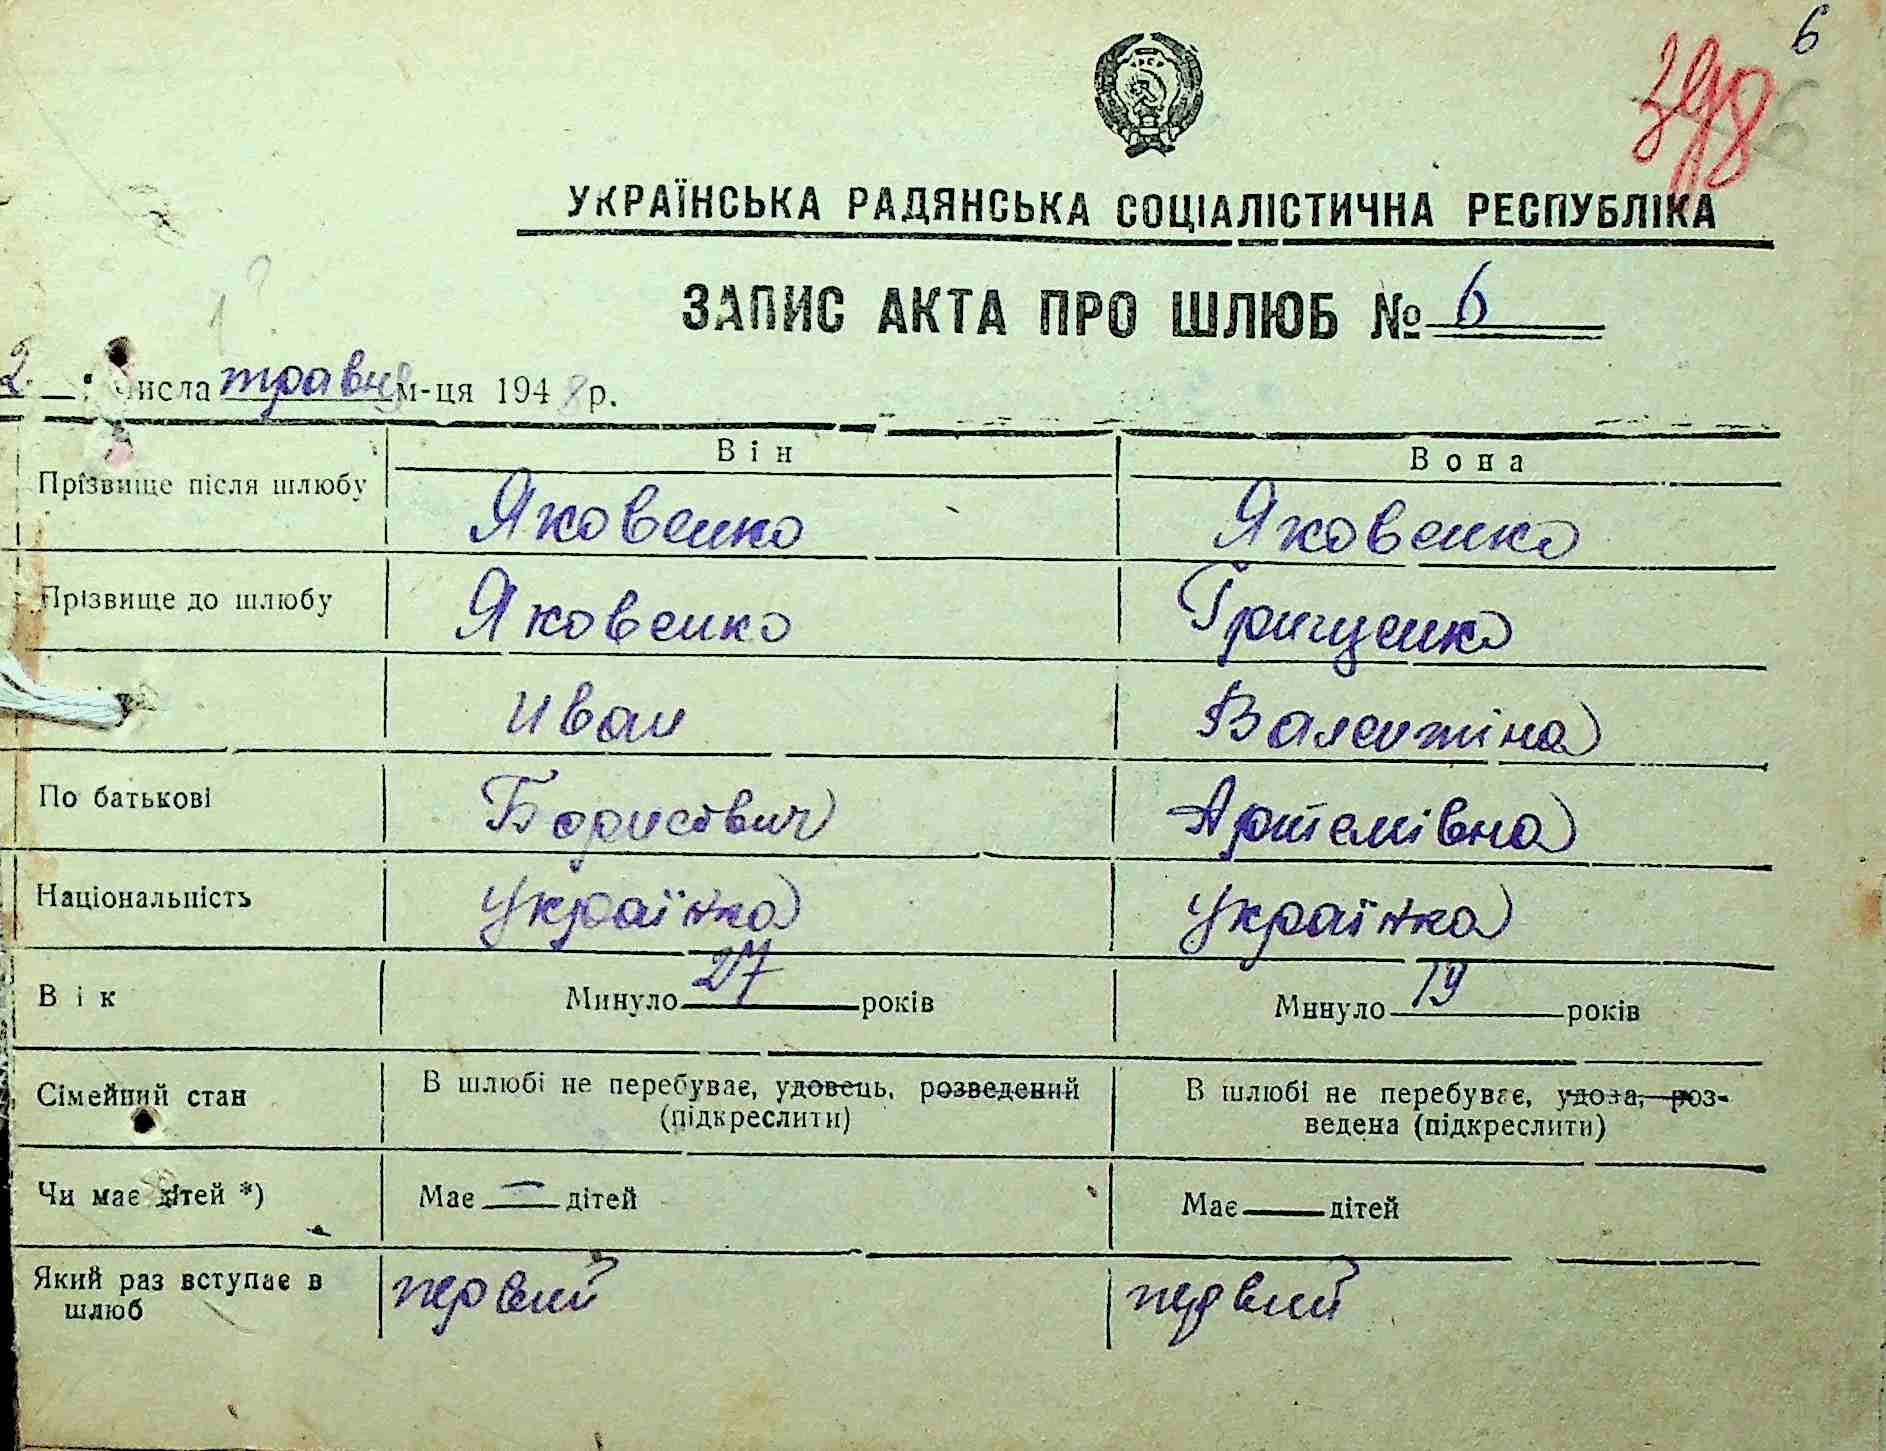 6
398
УКРАЇНСЬКА РАДЯНСЬКА СОЦІАЛІСТИЧНА РЕСПУБЛІКА
ЗАПИС АКТА ПРО ШЛЮБ № 6
2 числа травня м-ця 1948 р.
Він Вона
Прізвище після шлюбу Яковенко Яковенко
Прізвище до шлюбу Яковенко Грищенко
Иван Валентіна
По батькові Борисович Артемівна
Національність Українка Українка
Вік Минуло 27 років Минуло 19 років
Сімейний стан В шлюбі не перебуває, удовець, розведений В шлюбі не перебуває, удова, роз-
(підкреслити) ведена (підкреслити)
Чи має дітей *) Має — дітей Має дітей
Який раз вступає в первий первий
шлюб